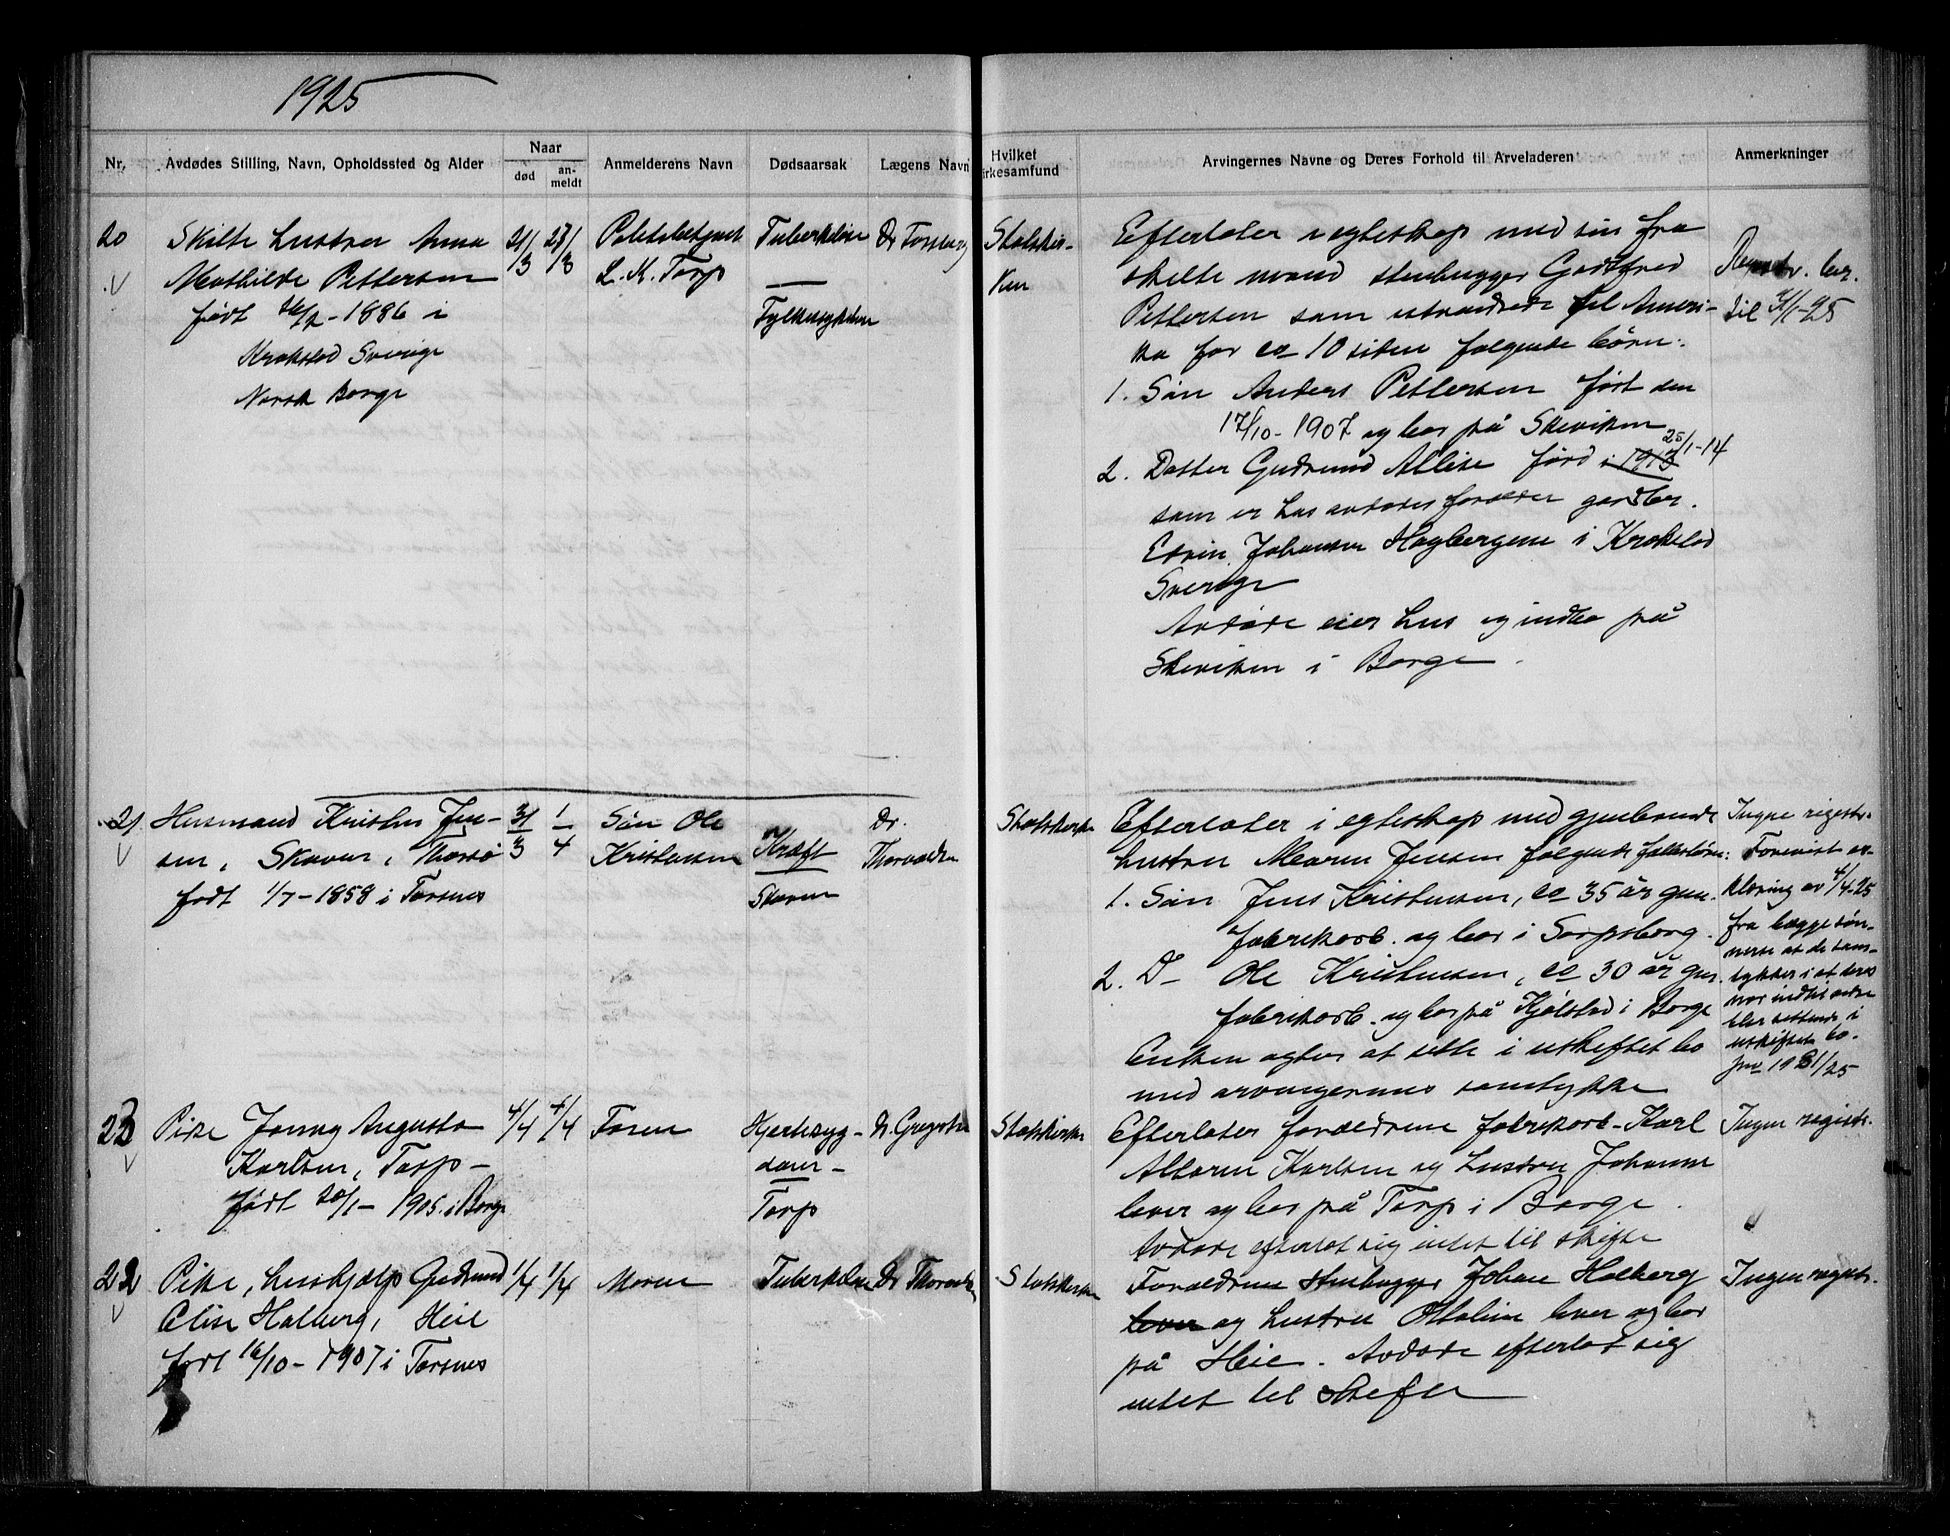 1925
Nr.
Avdødes Stilling, Navn, Opholdssted og Alder
Naar
død
an-
meldt
Anmelderens Navn
Dødsaarsak
Lægens Navn
Hvilket
irkesamfund
Arvingernes Navne og Deres Forhold til Arveladeren
Anmerkninger
20
Skilte hustru Anna
Mathilde Pettersen
født 26/2 - 1886 i
Krokstad Sverige
Norsk Borge
21/3
27/3
Politibetjent
L. K. Torp
Tuberkulose
Fylkessykehus
Dr Forsberg
Statskir-
ken
Efterlater i egteskap med sin fra
skilte mand stenhugger Godtfred
Pettersen som utvandrede til Ameri-
ka for ca 10 siden følgende børn:
1. Søn Anders Pettersen født den
17/10 - 1907 og bor på Skeviken
25/1-14
2. Datter Gudrund Allise født i 1913
som er hos avdødes forældre gardbr.
Edvin Johansen Høgbergene i Krokstad
Sverige
Avdøde eier hus og indbo på
Skeviken i Borge.
Registr. ber.
til 4/1-25
21.
Husmand Kristen Jen-
sen, Skaven, Thorsø
født 1/7 - 1858 i Torsnes
31/3
1/4
Søn Ole
Kristensen
Kræft
Skaven
Dr.
Thorvaldsen
Statskirke
Efterlater i egteskap med gjenlevende
hustru Maren Jensen følgende fællesbørn:
1. Søn Jens Kristensen, ca 35 år gm.
fabrikarb. og bor i Sarpsborg.
2. D- Ole Kristensen, ca 30 år gm.
fabrikarb. og bor på Kjølstad i Borge
Enken agter at sitte i uskiftet bo
med arvingernes samtykke
Ingen registr.
Forevist er-
klæring av 4/4-25
fra begge søn-
nerne at de sam-
tykker i at deres
mor indtil videre
blir sittende i
uskiftet bo.
jnr 1931/25
23
Pike Jenny Augusta
Karlsen, Torp -
født 20/1 - 1905 i Borge
4/4
4/4
Faren
Hjertesyg-
dom -
Torp
Dr. Gregersen
Statskirke
Efterlater forældrene fabrikarb. Karl
Albarn Karlsen og hustru Johanne
lever og bor på Torp i Borge.
Avdøde efterlot sig intet til skifte
Ingen registr.
22
Pike, hushjælp Gudrund
Elise Halberg, Heie
født 16/10 - 1907 i Torsnes
1/4
1/4
Moren
Tuberkulose
Dr Thorvaldsen
Statskirke
Forældrene stenhugger Johan Halberg
lever og hustru Ottoline lever og bor
på Heie. Avdøde efterlot sig
intet til skifte
Ingen registr.